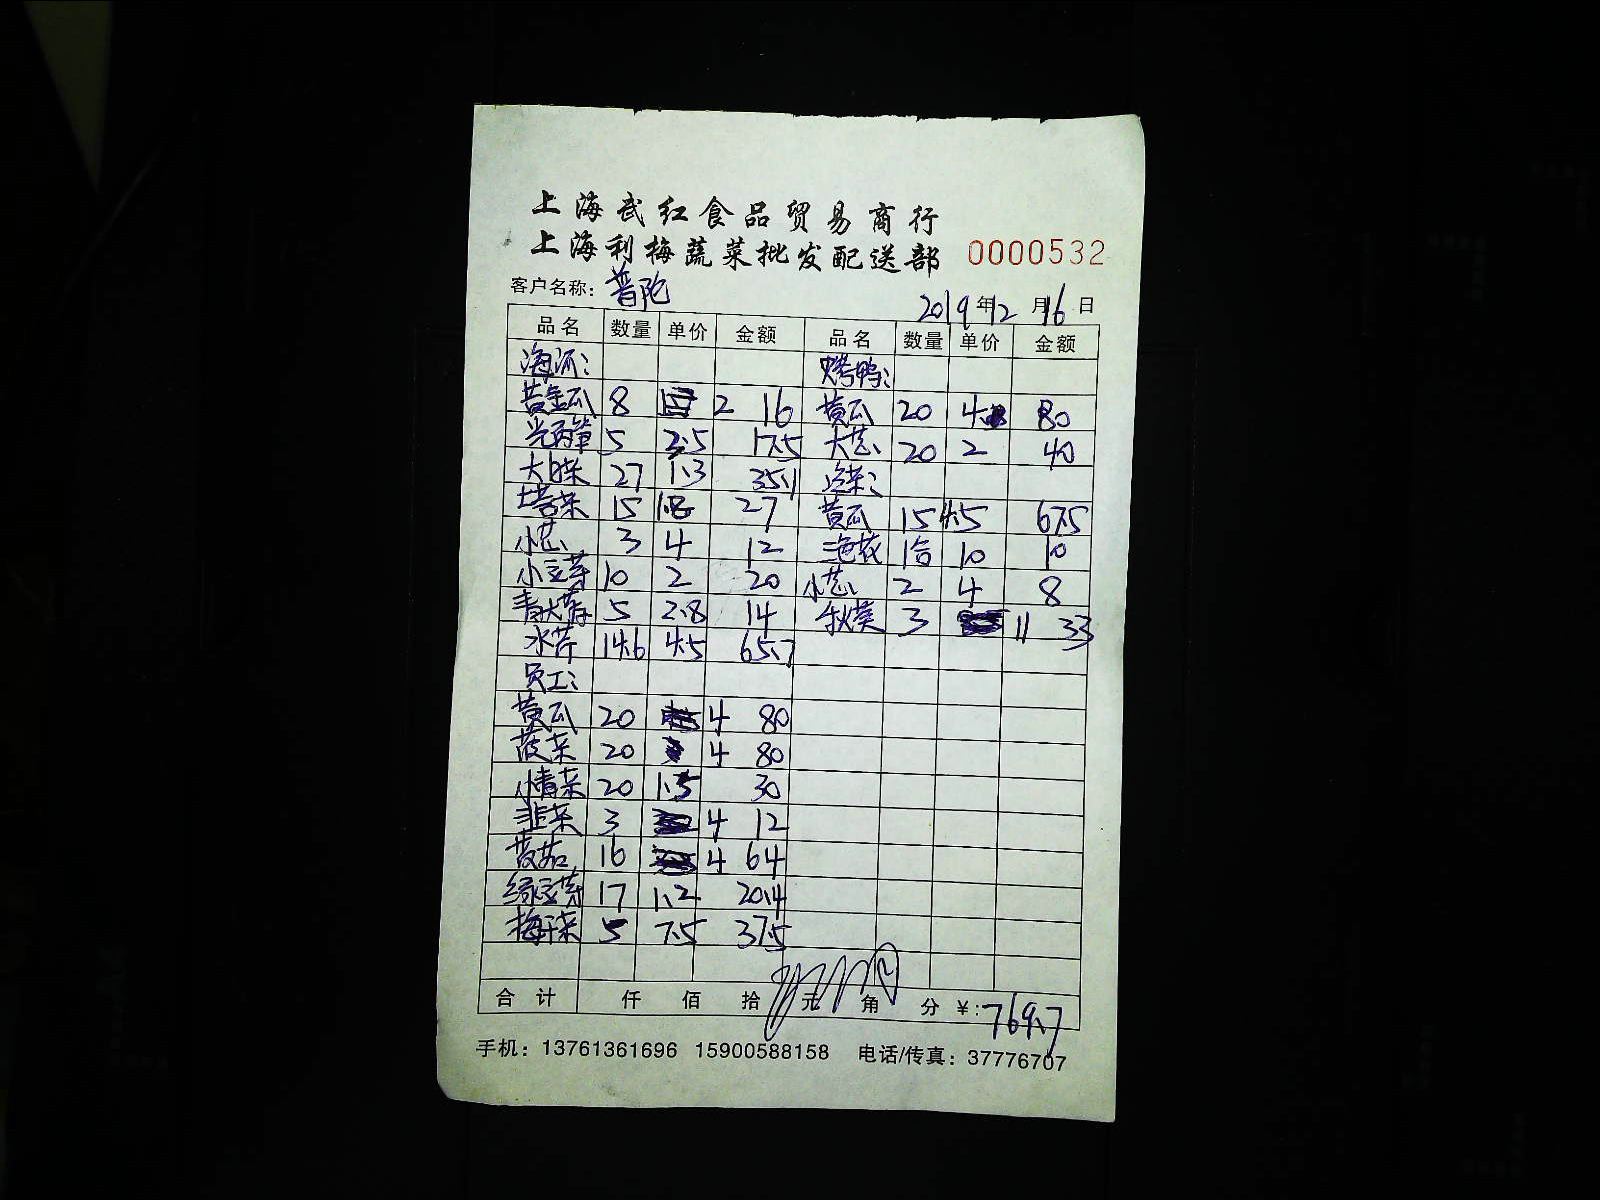 上海武红食品贸易商行
上海利梅蔬菜批发配送部 0000532
客户名称：普陀 2019年12月16日
品名 数量 单价 金额 品名 数量 单价 金额
海派： 烤鸭：
黄金瓜 8 2 16 黄瓜 20 4 80
5 17.5 大葱 20 2 40
大白菜 27 1.3 35.1 冷菜：
塔菜 15 1.8 27 黄瓜 15 4.5 67.5
小葱 3 4 12 三色花 1合 10 10
小豆芽 10 2 20 小葱 2 4 8
青大蒜 5 2.8 14 秋葵 3 11 33
水芹 14.6 4.5 65.7
员工：
黄瓜 20 4 80
菠菜 20 4 80
小青菜 20 1.5 30
韭菜 3 4 12
茨菇 16 4 64
绿豆芽 17 1.2 20.4
梅干菜 5 7.5 37.5
合计 仟 佰 拾 元 角 分 ￥：769.7
手机：13761361696 15900588158 电话/传真：37776707